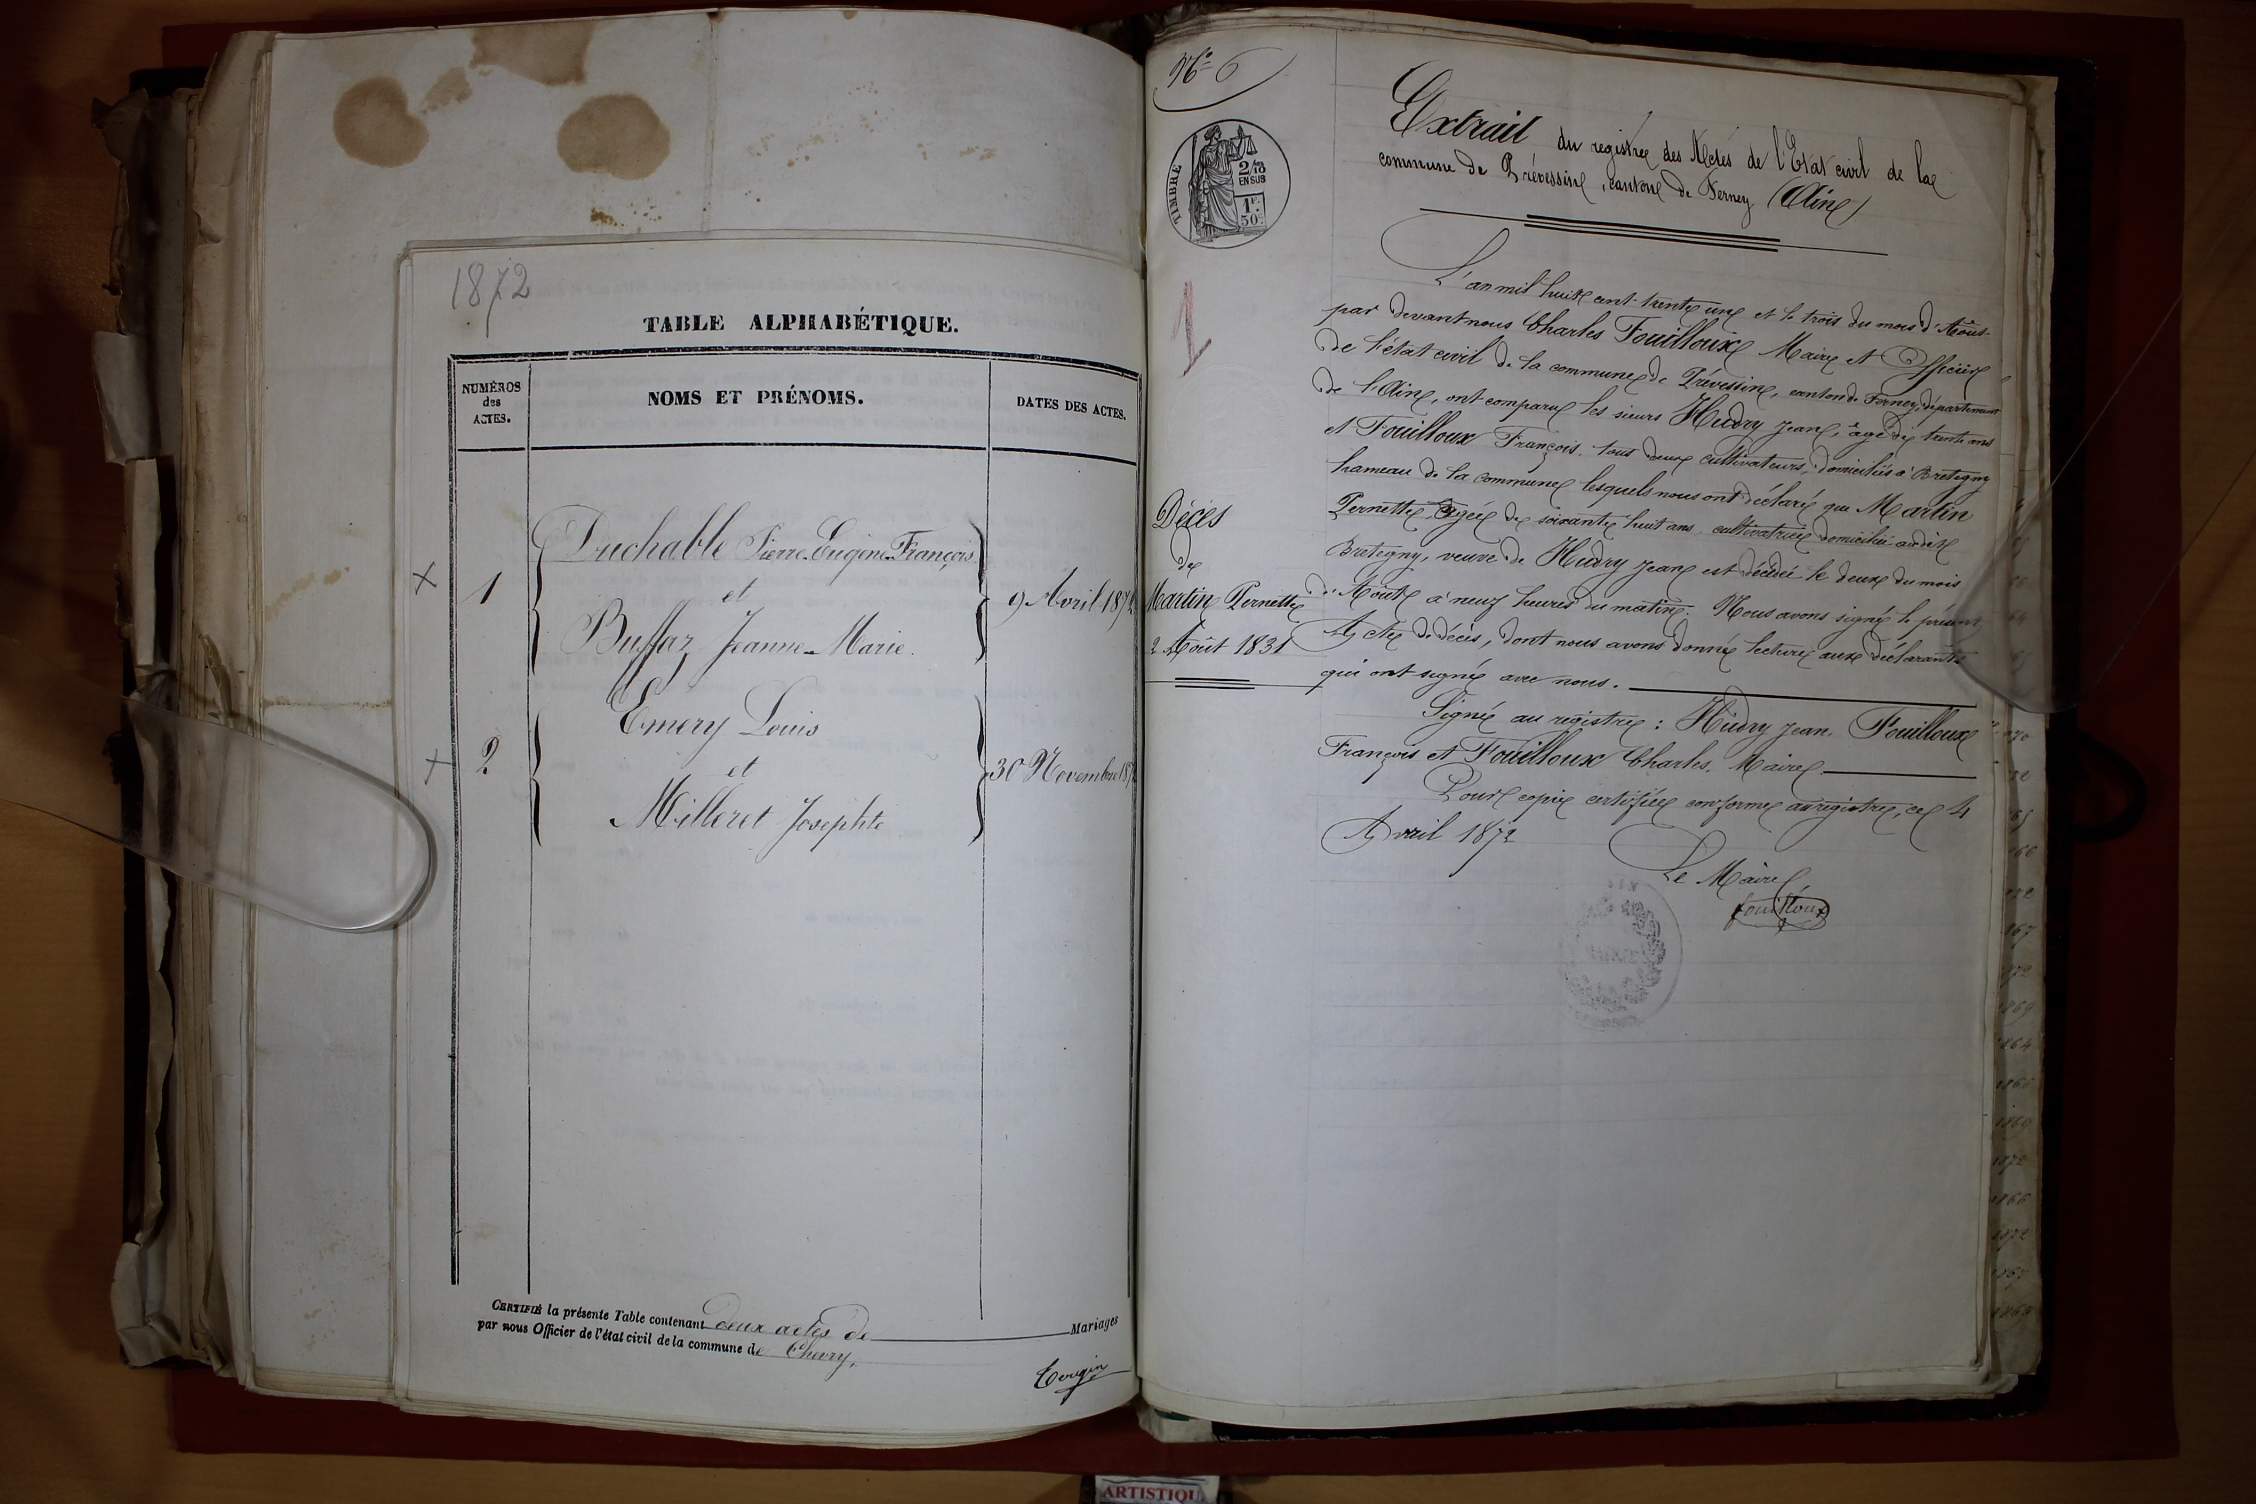 1872
TABLE ALPHABÉTIQUE.
NUMÉROS
des
ACTES.
NOMS ET PRÉNOMS.
DATES DES ACTES.
1
Duchable Pierre-Eugène-François
et
Buffaz Jeanne-Marie.
9 Avril 1872
2
Emery Louis
et
Milleret Josephte
30 Novembre 187
CERTIFIÉ la présente Table contenant deux actes de Mariages
par nous Officier de l'état civil de la commune de Chevry,
Tougin
N° 6
TIMBRE
2/10
EN SUS
1F.
50c.
1
Extrait du registre des Actes de l'Etat civil de la
commune de Prévessin, canton de Ferney (Ain)
Décès
de
Martin Pernette
2 Août 1831
L'an mil huit cent-trente un et le trois du mois d'Août
par devant nous Charles Fouilloux Maire et Officier
de l'état civil de la commune de Prévessin, canton de Ferney, département
de l'Ain, ont comparu les sieurs Hudry Jean, âgé de trente ans
et Fouilloux François. tous deux cultivateurs, domiciliés à Bretegny
hameau de la commune lesquels nous ont déclaré que Martin
Pernette, Agée de soixante huit ans, cultivatrice domiciliée audit
Bretegny, veuve de Hudry Jean est décédée le deux du mois
d'Août à neuf heures du matin. Nous avons signé le présent
Acte de décès, dont nous avons donné lecture aux déclarants
qui ont signé avec nous.
Signé au registre : Hudry Jean, Fouilloux
François et Fouilloux Charles. Maire
Pour copie certifiée conforme au registre, ce 4
Avril 1872
Le Maire
fouilloux
170
72
65
166
172
167
172
1869
1864
1866
1869
1872
1866
1872
1865
1865
ARTISTIQU